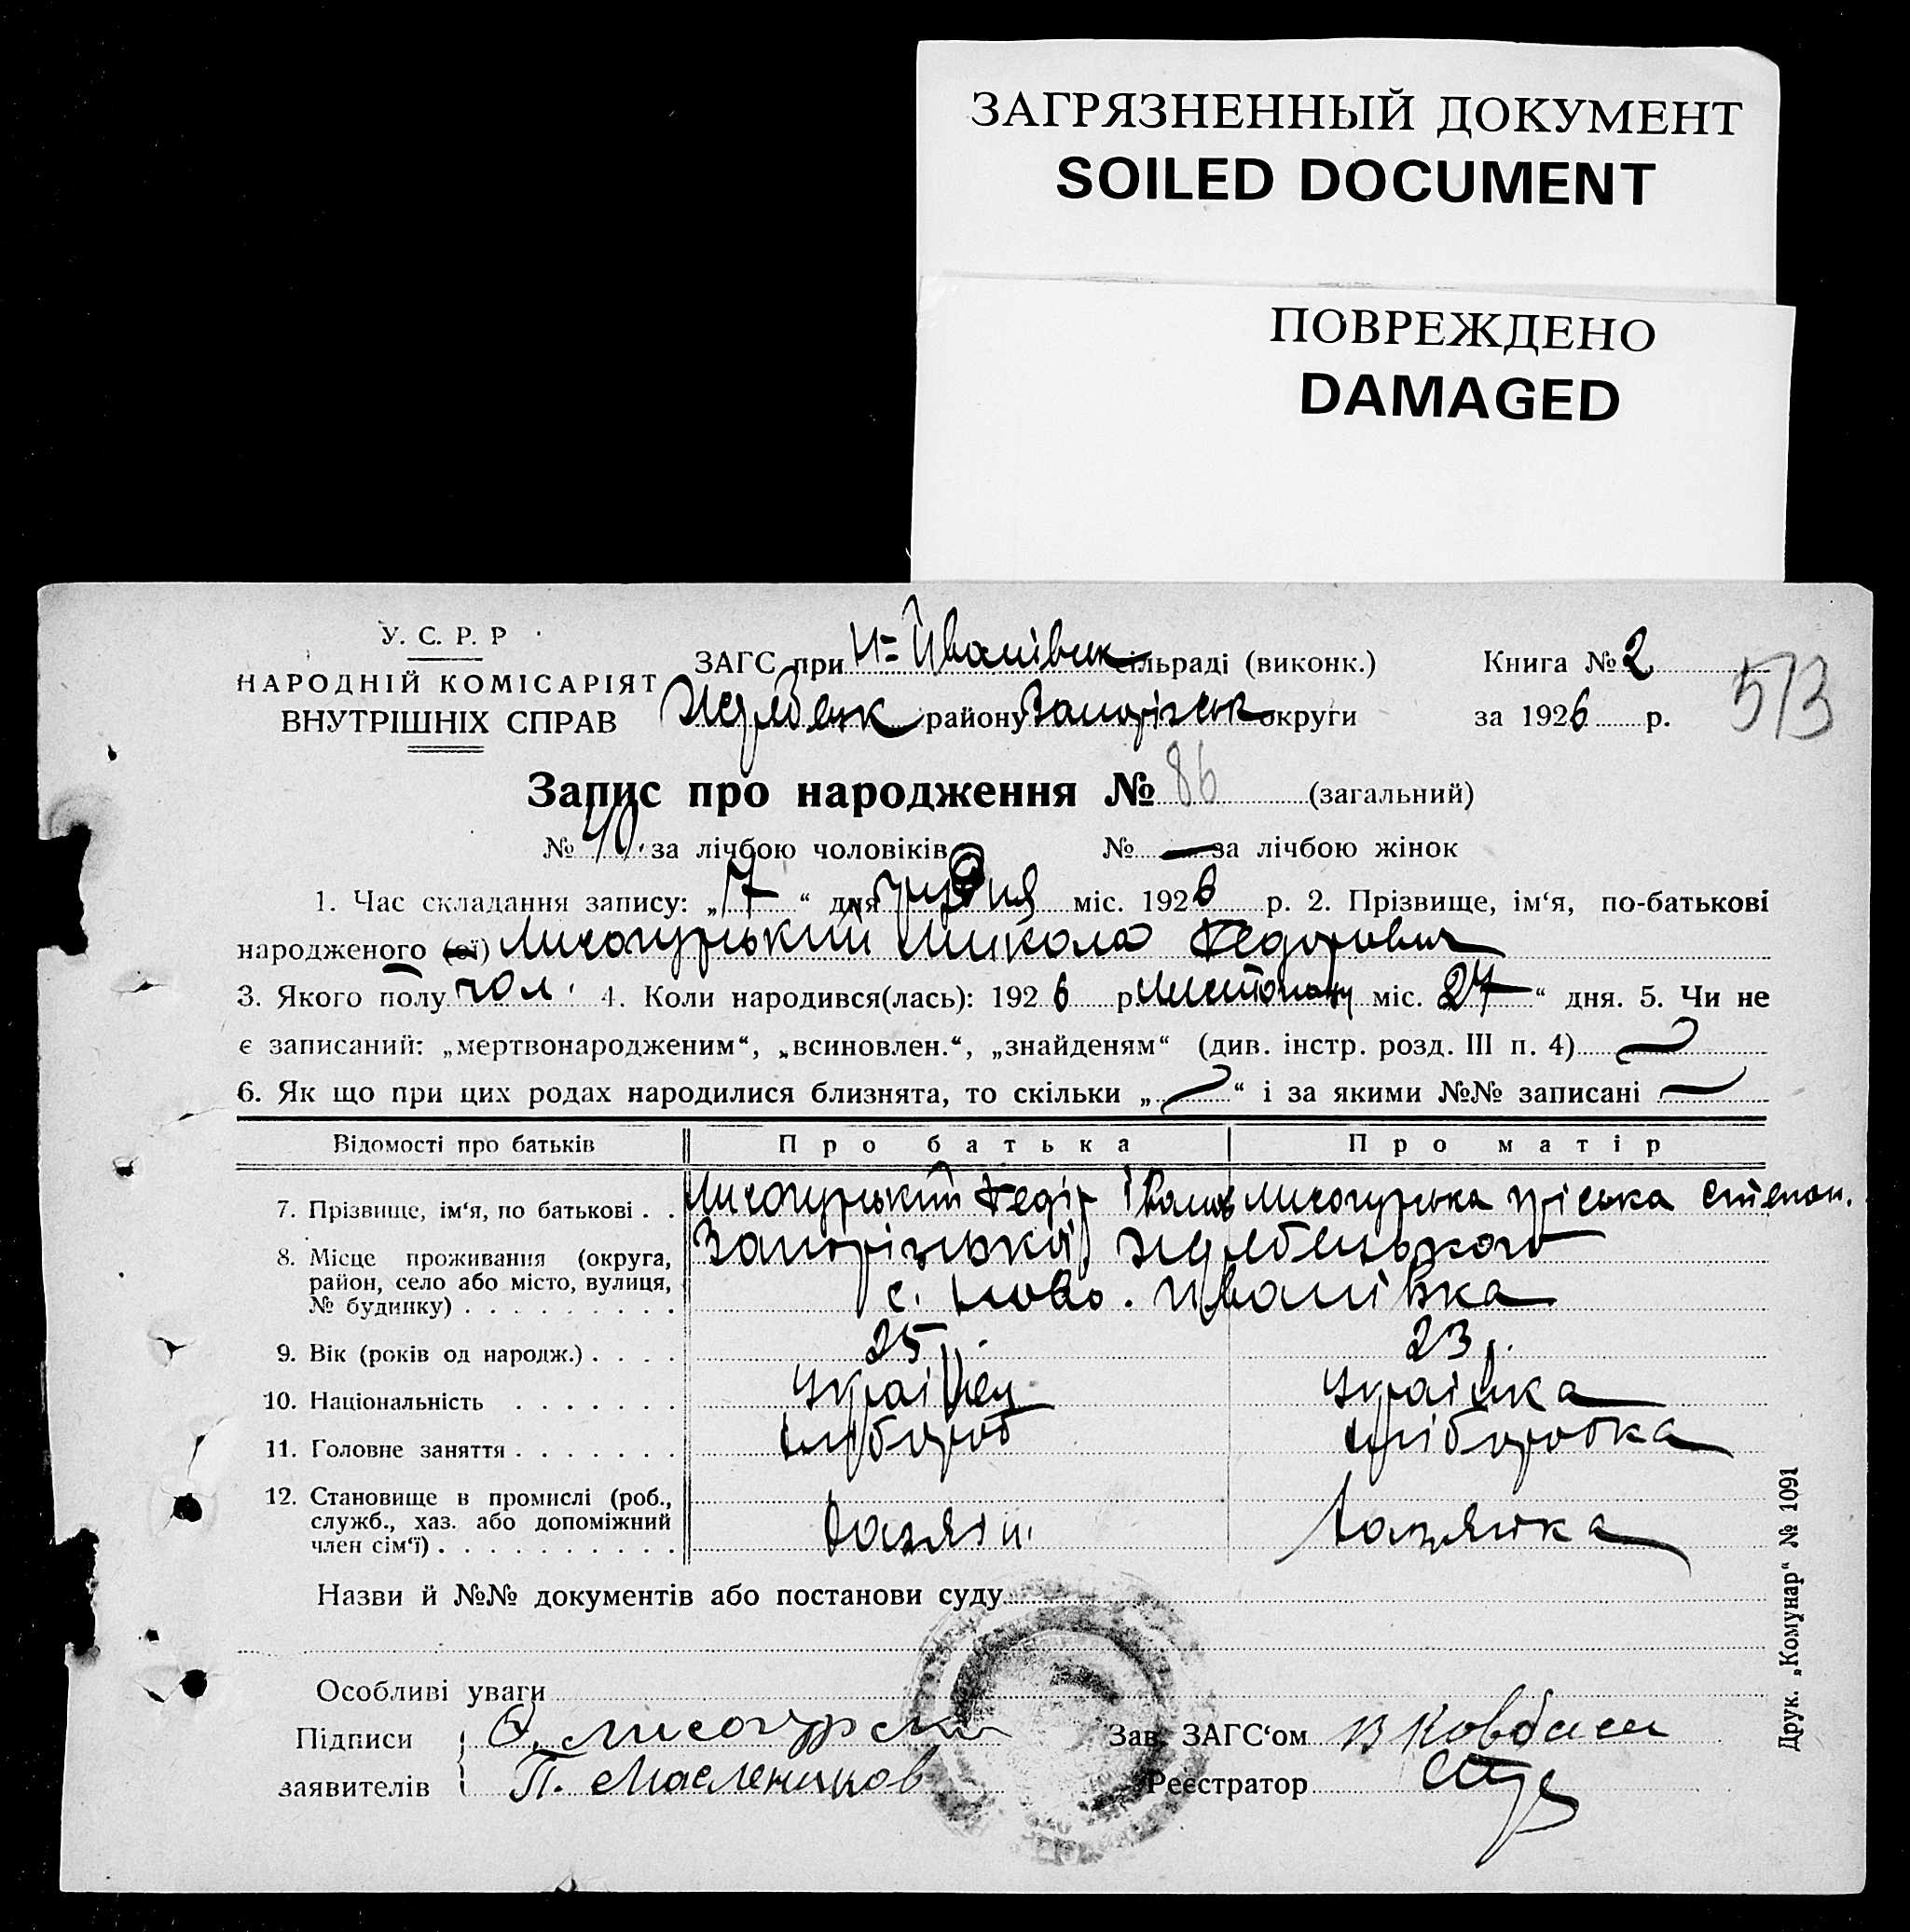 ЗАГРЯЗНЕННЫЙ ДОКУМЕНТ
SOILED DOCUMENT
ПОВРЕЖДЕНО
DAMAGED
У. С. Р. Р
НАРОДНІЙ КОМІСАРІЯТ
ВНУТРІШНІХ СПРАВ
ЗАГС при Н-Йванівськ сільраді (виконк.)
Жеребецьк району Запорізськ округи
Книга № 2
за 1926 р.
513
Запис про народження № 86 (загальний)
№ 40. за лічбою чоловіків № — за лічбою жінок
1. Час складання запису: „17“ дня грудня міс. 1926 р. 2. Прізвище, ім‘я, по-батькові
народженого (ої) Лисогурський Микола Федорович
3. Якого полу чол. 4. Коли народився(лась): 1926 р. листопаду міс. 27 “ дня. 5. Чи не
є записаний: „мертвонародженим“, „всиновлен.“, „знайденям“ (див. інстр. розд. III п. 4) —
6. Як що при цих родах народилися близнята, то скільки „ — “ і за якими №№ записані —
Відомості про батьків Про батька Про матір
7. Прізвище, ім‘я, по батькові . . Лисогурський Федір Іванов Лисогурська Пріська Степан.
8. Місце проживання (округа, Запорізської Жеребецького
район, село або місто, вулиця,
№ будинку) . . . . . . . . . с. Ново. Иванівка
9. Вік (років од народж.) . . . . 25 р. 23 р.
10. Національність . . . . . . . Українец Українка
11. Головне заняття . . . . . . . хлібороб хліборобка
12. Становище в промислі (роб.,
служб., хаз. або допоміжний
член сім‘ї) . . . . . . . . . . хазяїн. хазяйка
Назви й №№ документів або постанови суду
Особливі уваги
Підписи
заявителів
Ф. Лисогурски
П. Маслеников
Зав. ЗАГС‘ом В Ковбаса
Реєстратор
Друк. „Комунар“ № 1091